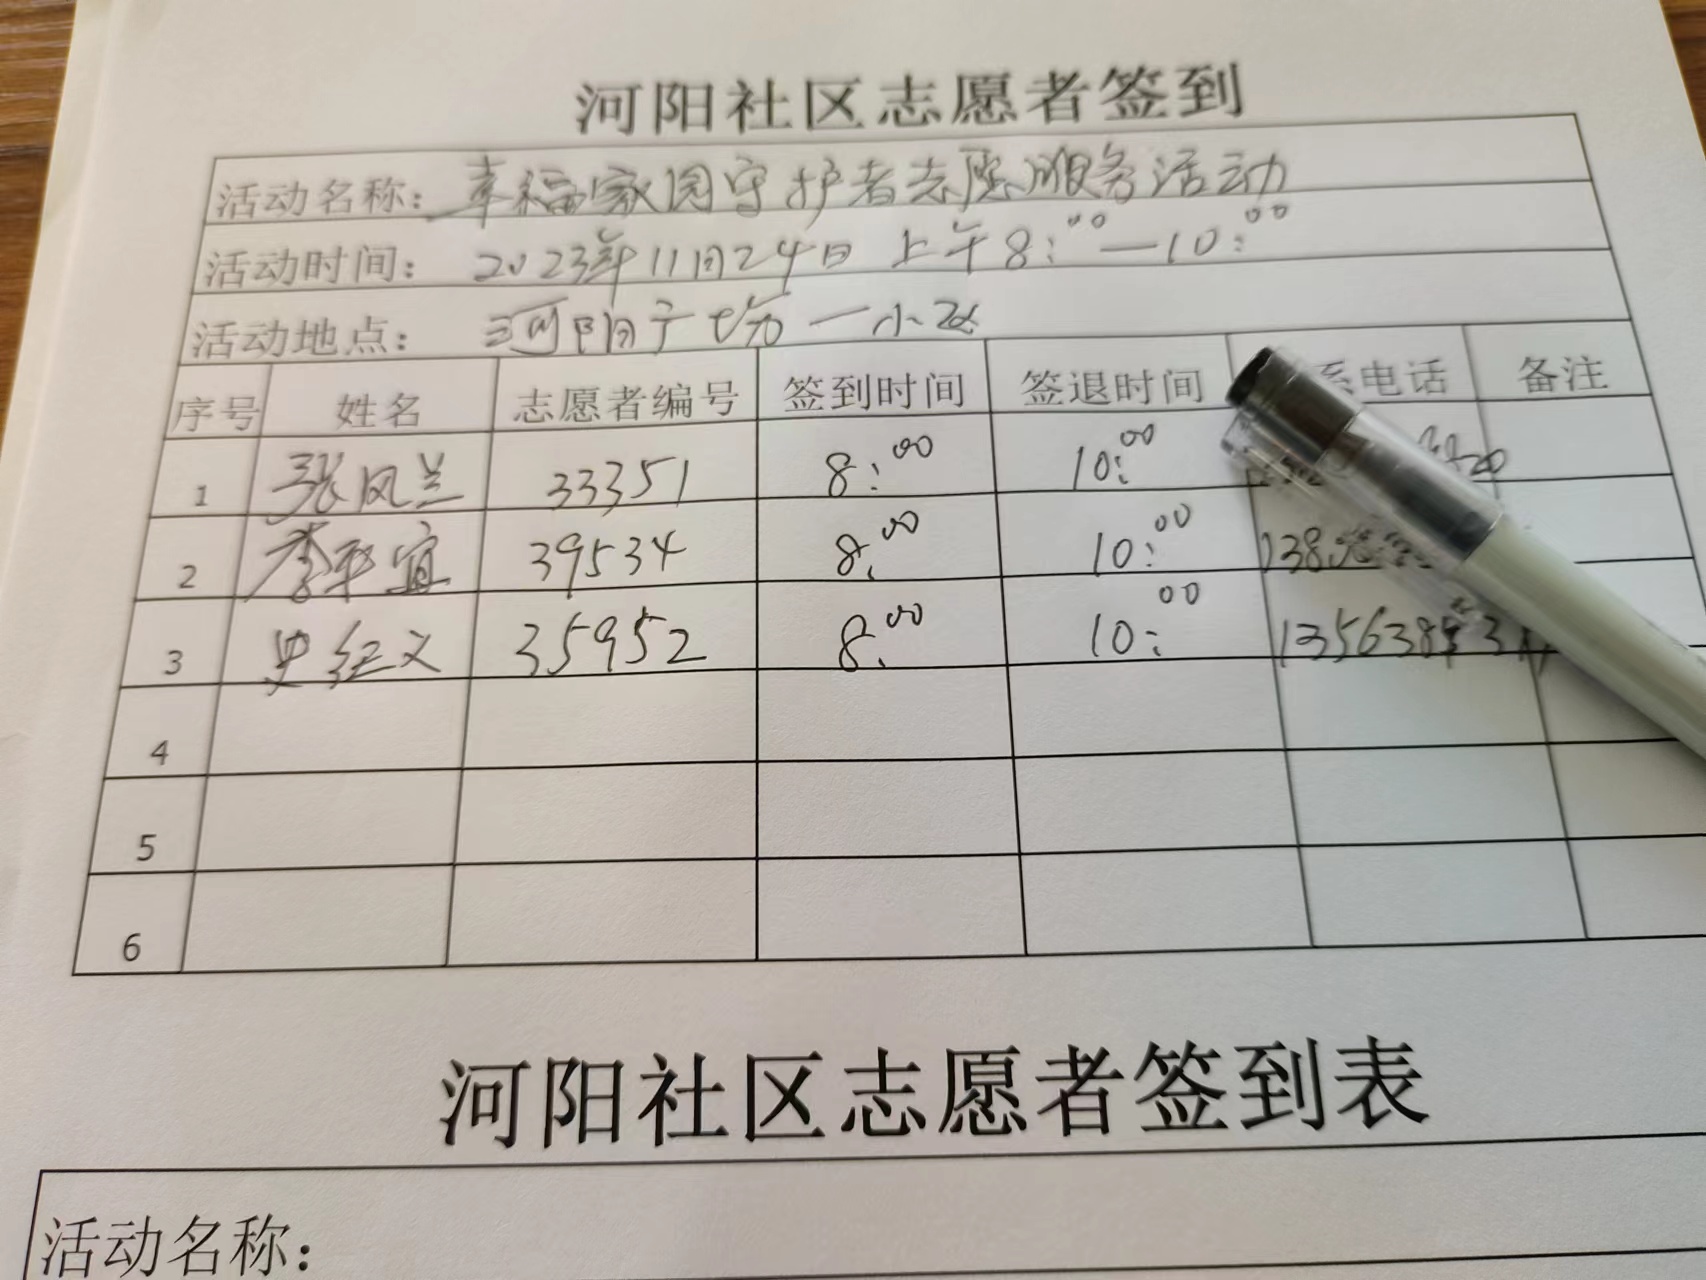 河阳社区志愿者签到
活动名称：幸福家园守护者志愿服务活动
活动时间：2023年11月24日 上午8:00—10:00
活动地点：河阳广场一小区
序号 姓名 志愿者编号 签到时间 签退时间 系电话 备注
1 张凤兰 33351 8:00 10:00
2 李平宜 39534 8:00 10:00 138
3 史红义 35952 8:00 10:00
4
5
6
河阳社区志愿者签到表
活动名称：